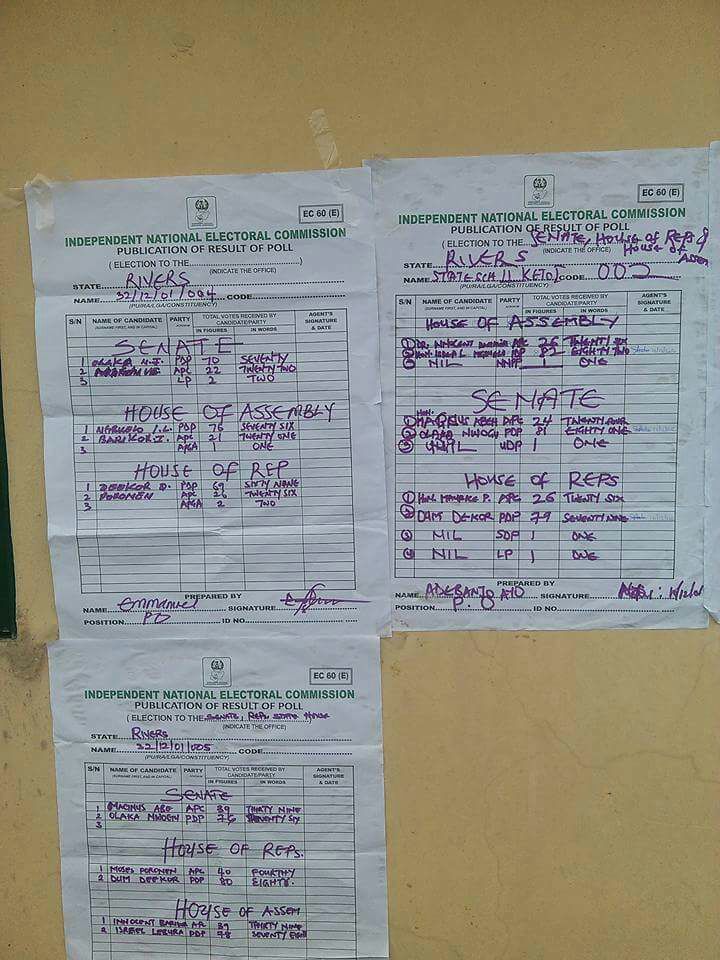 EC 60 (E)
INDEPENDENT NATIONAL ELECTORAL COMMISSION
PUBLICATION OF RESULT OF POLL
( ELECTION TO THE..............................)
(INDICATE THE OFFICE)
STATE RIVERS
NAME 32/12/01/004 CODE
(PU/RA/LGA/CONSTITUENCY)
S/N NAME OF CANDIDATE (SURNAME FIRST, AND IN CAPITAL) PARTY TOTAL VOTES RECEIVED BY CANDIDATE/PARTY IN FIGURES IN WORDS AGENT'S SIGNATURE & DATE
SENATE
1 OLAKA PDP 70 SEVENTY
2 APC 22 TWENTY TWO
3 LP 2 TWO
HOUSE OF ASSEMBLY
1 PDP 76 SEVENTY SIX
2 BARIKOR I. APC 21 TWENTY ONE
3 APGA 1 ONE
HOUSE OF REP
1 DEEKOR D. PDP 69 SIXTY NINE
2 POROMEN APC 26 TWENTY SIX
3 APGA 2 TWO
PREPARED BY
NAME Emmanuel SIGNATURE
POSITION PO ID NO.
EC 60 (E)
INDEPENDENT NATIONAL ELECTORAL COMMISSION
PUBLICATION OF RESULT OF POLL
( ELECTION TO THE SENATE, HOUSE OF REPS &
HOUSE OF ASSEM
(INDICATE THE OFFICE)
STATE RIVERS
NAME STATE SCH. II KETO/ CODE 003
(PU/RA/LGA/CONSTITUENCY)
S/N NAME OF CANDIDATE (SURNAME FIRST, AND IN CAPITAL) PARTY TOTAL VOTES RECEIVED BY CANDIDATE/PARTY IN FIGURES IN WORDS AGENT'S SIGNATURE & DATE
HOUSE OF ASSEMBLY
1 DR. INNOCENT APC 26 TWENTY SIX
2 HON. PDP 82 EIGHTY TWO
3 NIL 1 ONE
SENATE
1 HON. MAGNUS ABEH APC 24 TWENTY FOUR
2 OLAKA NWOGU PDP 81 EIGHTY ONE
3 UDP 1 ONE
HOUSE OF REPS
1 HON. MAURICE P. APC 26 TWENTY SIX
2 DUM DEEKOR PDP 79 SEVENTY NINE
3 NIL SDP 1 ONE
4 NIL LP 1 ONE
PREPARED BY
NAME ADEBANJO AYO SIGNATURE
POSITION P.O ID NO.
EC 60 (E)
INDEPENDENT NATIONAL ELECTORAL COMMISSION
PUBLICATION OF RESULT OF POLL
( ELECTION TO THE SENATE, REP, STATE HOUSE
(INDICATE THE OFFICE)
STATE RIVERS
NAME 32/12/01/005 CODE
(PU/RA/LGA/CONSTITUENCY)
S/N NAME OF CANDIDATE (SURNAME FIRST, AND IN CAPITAL) PARTY TOTAL VOTES RECEIVED BY CANDIDATE/PARTY IN FIGURES IN WORDS AGENT'S SIGNATURE & DATE
SENATE
1 MAGNUS ABE APC 39 THIRTY NINE
2 OLAKA NWOGU PDP 76 SEVENTY SIX
3
HOUSE OF REPS.
1 MOSES POROMEN APC 40 FOURTHY
2 DUM DEEKOR PDP 80 EIGHTY.
HOUSE OF ASSEM
1 INNOCENT BARIKOR APC 39 THIRTY NINE
2 ISREEL LEBURA PDP 78 SEVENTY EIGHT